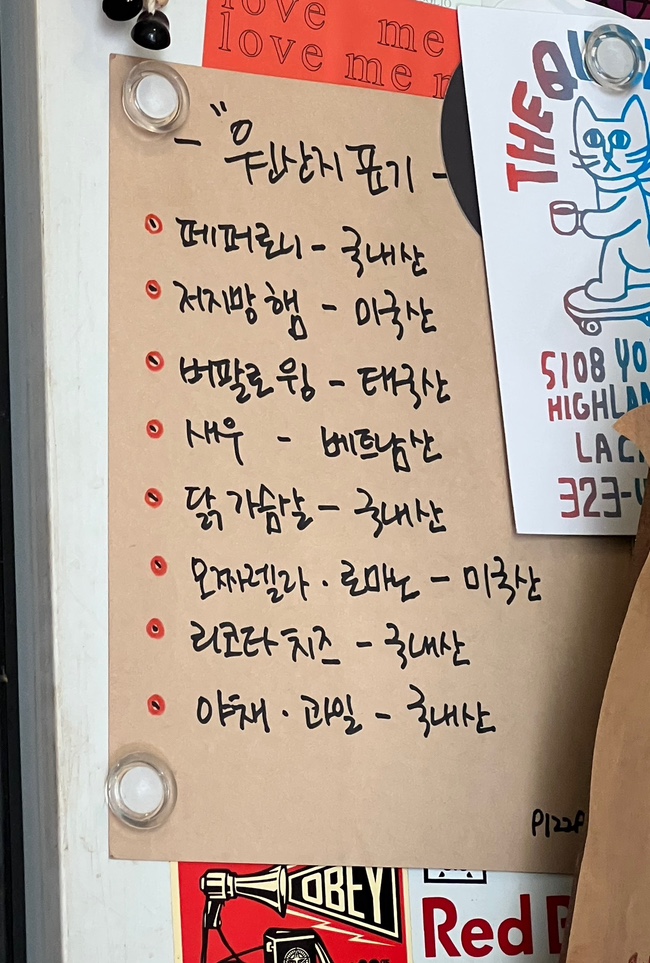 love me
love me
- "원산지 표기 -
페퍼로니 - 국내산
저지방 햄 - 미국산
버팔로 윙 - 태국산
새우 - 베트남산
닭 가슴살 - 국내산
모짜렐라 · 로마노 - 미국산
리코타 치즈 - 국내산
야채 · 과일 - 국내산
THE
5108 YO
HIGHLAN
LA C
323-
OBEY
Red